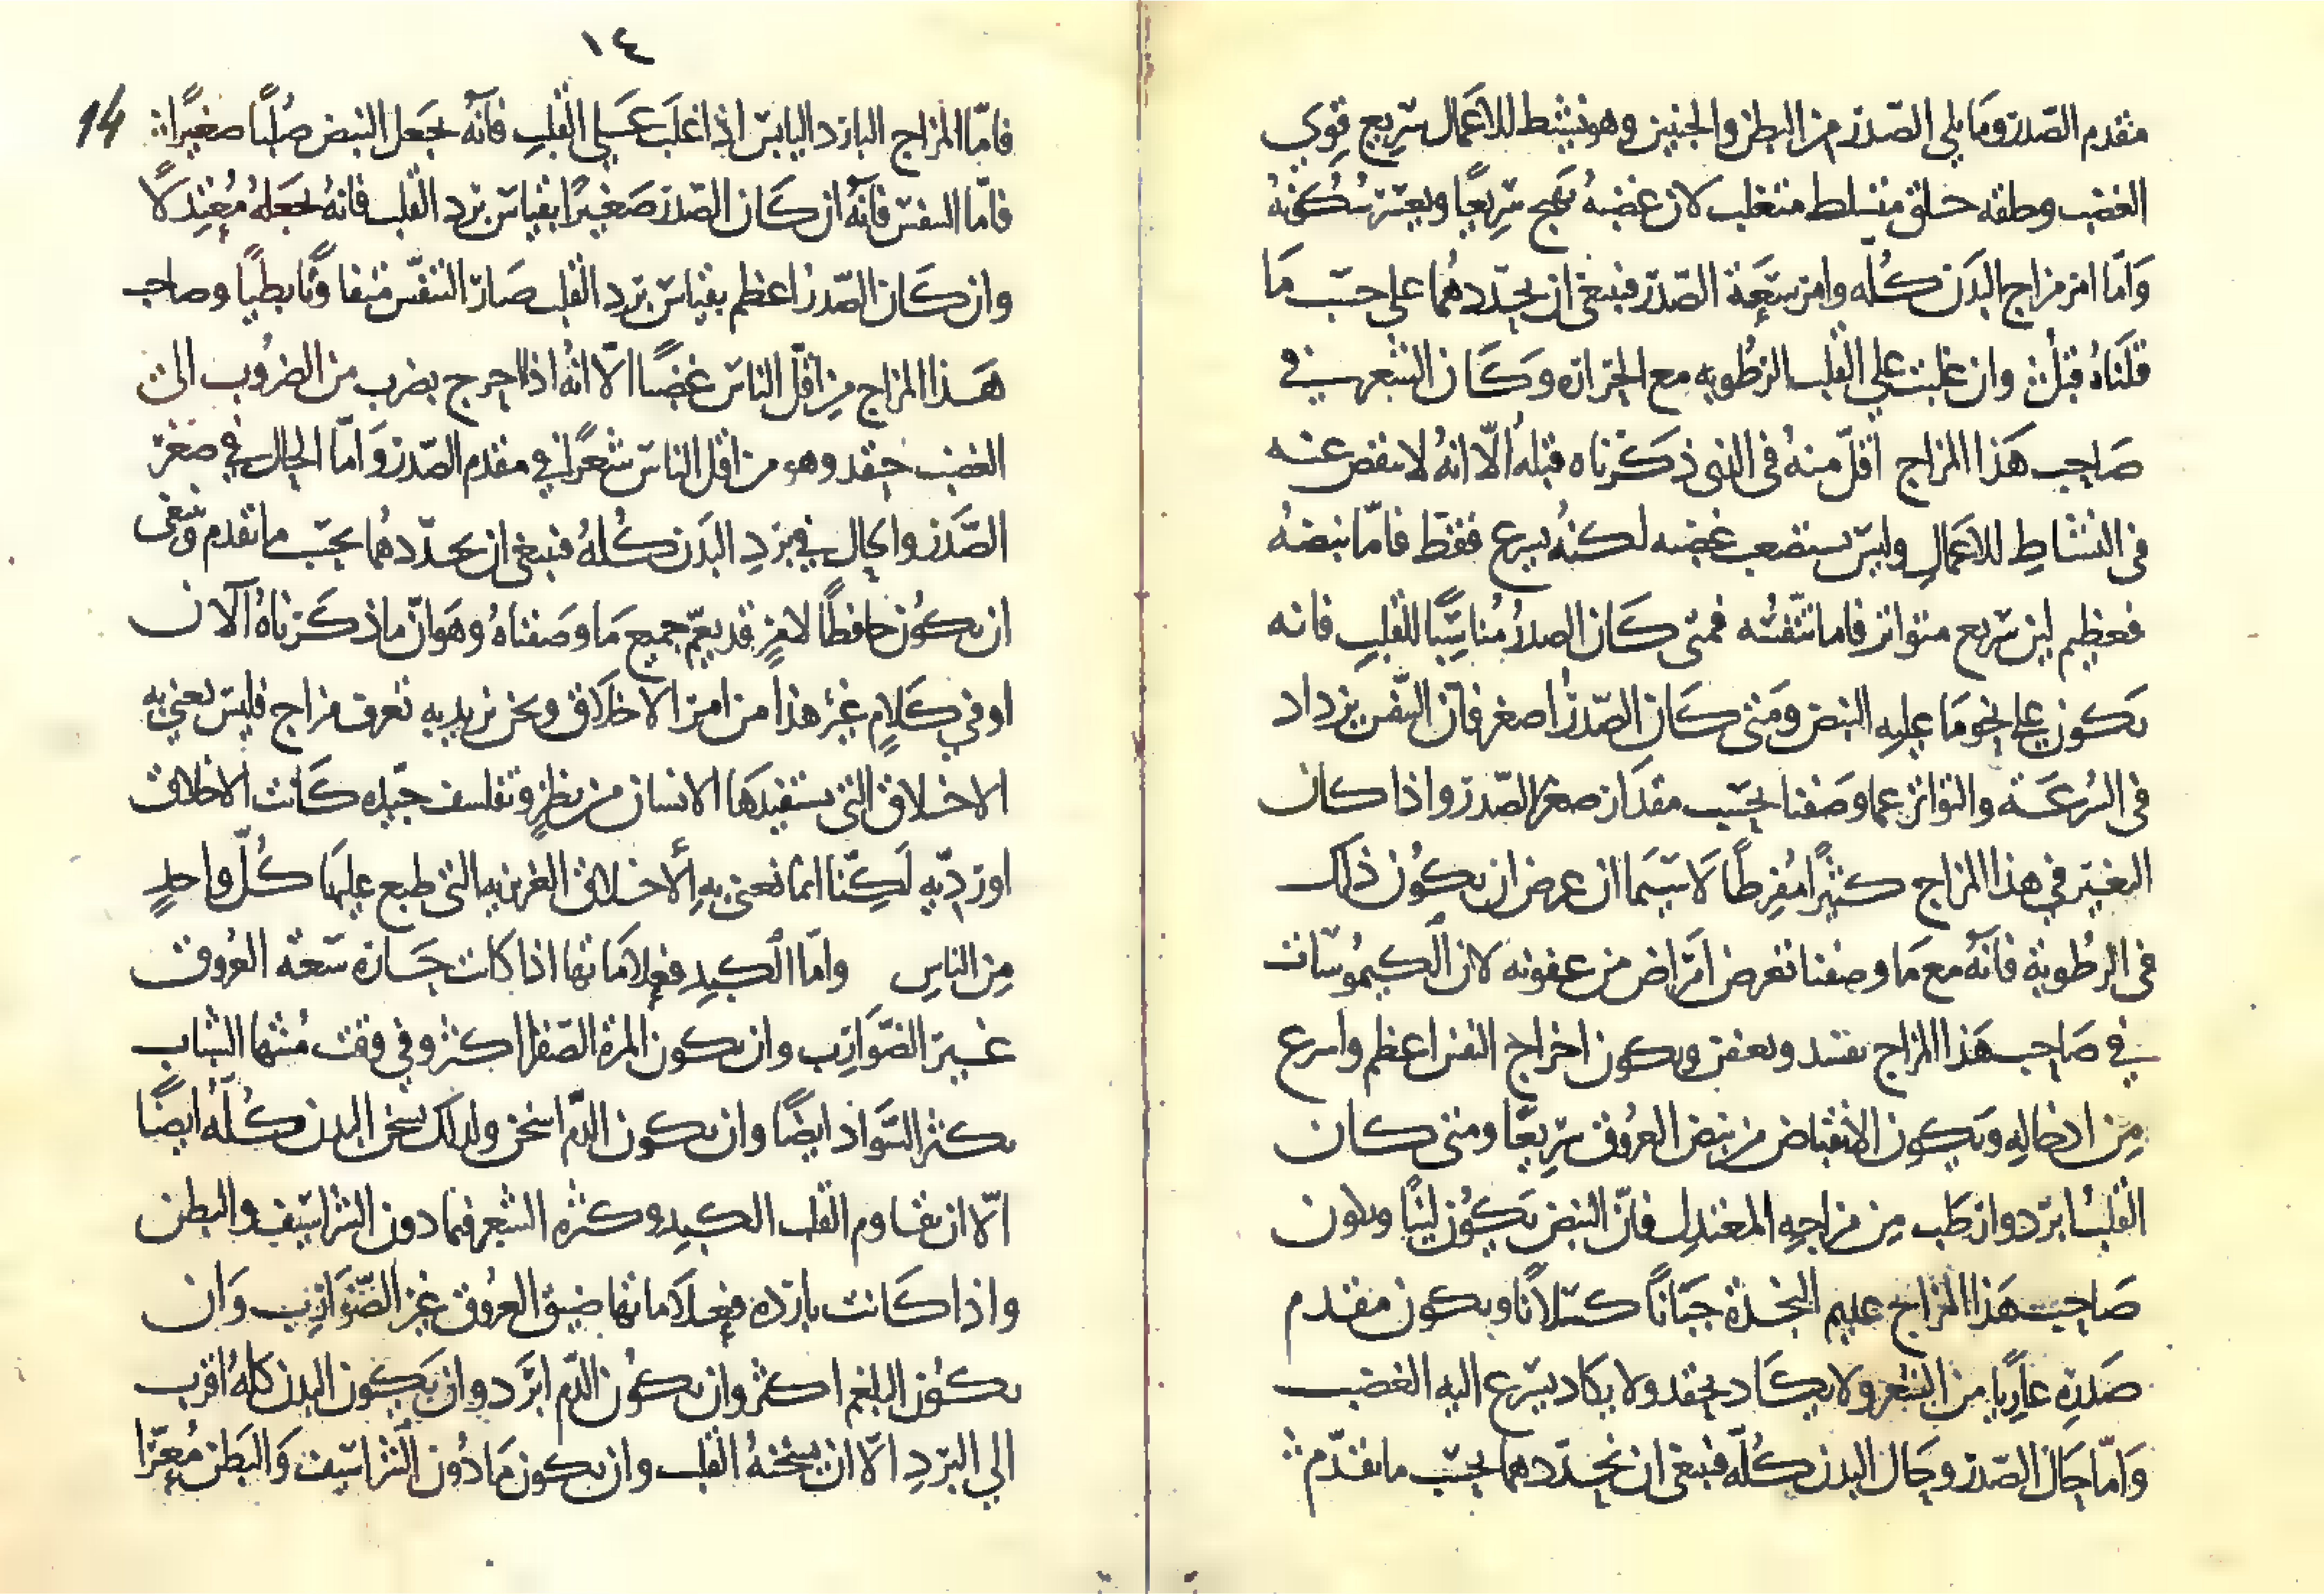 مقدم الصدر وما يلي الصدر من البطن والجنبين وهو نشيط للاعمال سريع قوي
الغضب وطقه خلق متسلط متغلب لان غضبه يهيج سريعًا ويعسر سكونه
وَامّا امر مزاج البدَن كُله وامر سَعَة الصّدر فينبغي ان يحدّدهُما على حسَب مَا
قلنَاهُ قبلُ وان غلبت على القلب الرطوبه مع الحرّاره وَكَان الشعر في
صَاحب هَذا المزاج اقلّ منهُ في الذي ذكرناه قبلهُ الّا انهُ لا ينقص عنه
في النشَاطِ للاعمالِ وليسَ يستصعب غضبه لكنهُ يسرع فقط فامّا نبضهُ
فعظيم لين سَريع متواتر فاما تنفّسُه فمتى كَان الصدرُ مُناسِبًا للقلبِ فانه
يكون على نحو مَا عليه النبض ومَتى كَان الصّدرُ اصغر فانّ النفس يزداد
في السُرعَة والتواتر عما وصَفنا بحسَب مقدَار صغر الصّدر واذا كان
التغيّر في هذا المزاج كثيرًا مُفرِطًا لَا سيّمَا ان عرض ان يكُون ذلك
في الرطُوبة فانّهُ مع مَا وصفنا تعرض امرَاض من عفونه لان الكيمُوسَات
في صَاحب هَذا المزاج تفسد وتعفن ويكون اخراج النفس اعظم واسرع
مِن ادخالِه ويَكون الانقباض من نبض العروُق سَرِيعًا ومتى كان
القلبُ ابرَد وارطَب مِن مزاجِهِ المعتدِل فانّ النبض يَكُون لينًا ويكون
صَاحب هَذا المزاج عديم النجدَة جبَانًا كسَلانًا ويكون مقدم
صَدرِه عارِيًا من الشعر ولا يكَاد يحقد ولا يكاد يسرع اليه الغضب
وَامّا حَال الصّدر وحَال البدن كُلّه فينبغي ان نحدّدهما بحسَب ما تقدّم
١٤
14
فامّا المزاج البارد اليابس اذا غلَب عَلى القلبِ فانّهُ يجعل النبض صُلبًا صغيرًا
فامّا النفس فانّهُ ان كَان الصّدر صَغيرًا بقياس بَرد القلب فانهُ يجعَلهُ مُعتدِلًا
وان كَان الصّدرُ اعظم بقياس بَرد القلب صَار التنفّس متفاوتًا بطيًا وصاحب
هَذا المزاج مِن اقلّ الناس غضبًا الّا انهُ اذا احرج بضرب من الضرُوب الى
الغضب حقد وهو من اقل الناس شعرًا في مقدم الصّدر وَامّا الحال في صغر
الصّدر والحَال في بَردِ البدَن كُلهُ فينبغي ان يحدّدهُما بحسَب ما تقدم وينبغي
ان يكُون حافظًا لامرٍ قد يعُم جميع مَا وصَفناهُ وهوَ انّ ما ذكرناهُ الآن
او في كَلامٍ غير هذا من امر الاخلاق ونحن نريد به تعرف مزاج فليسَ نعني به
الاخلاق التي يستفيدهَا الانسان من نظرٍ وتفلسف جيّده كَانت الاخلاق
او رديّه لَكِنّا انما نعني به الأخلاق الغريزيه التي طبع عليهَا كُلّ واحدٍ
مِن الناسِ وامّا الكبِد فعلامَاتها اذا كانت حَارة سَعَة العُروق
غير الضّوَارِب وان يكون المرة الصّفرا اكثر وفي وقت مُنتهى الشباب
يكثر السّوَاد ايضًا وان يكون الدّم اسخن ولذلك يسخن البدن كُلّه ايضًا
الّا ان يقاوم القلب الكبِد وكثره الشعر فيما دون الشراسيف والبطن
واذا كَانت بارده فعلامَاتها ضيق العروق غير الضّوَارِب وَان
يكُون البلغم اكثر وان يكُون الدّم ابرَد وان يَكون البدن كلهُ اقرب
الي البَردِ الّا ان يسخنهُ القلب وان يكون مَا دُون الشراسيف وَالبَطن مُعرّا